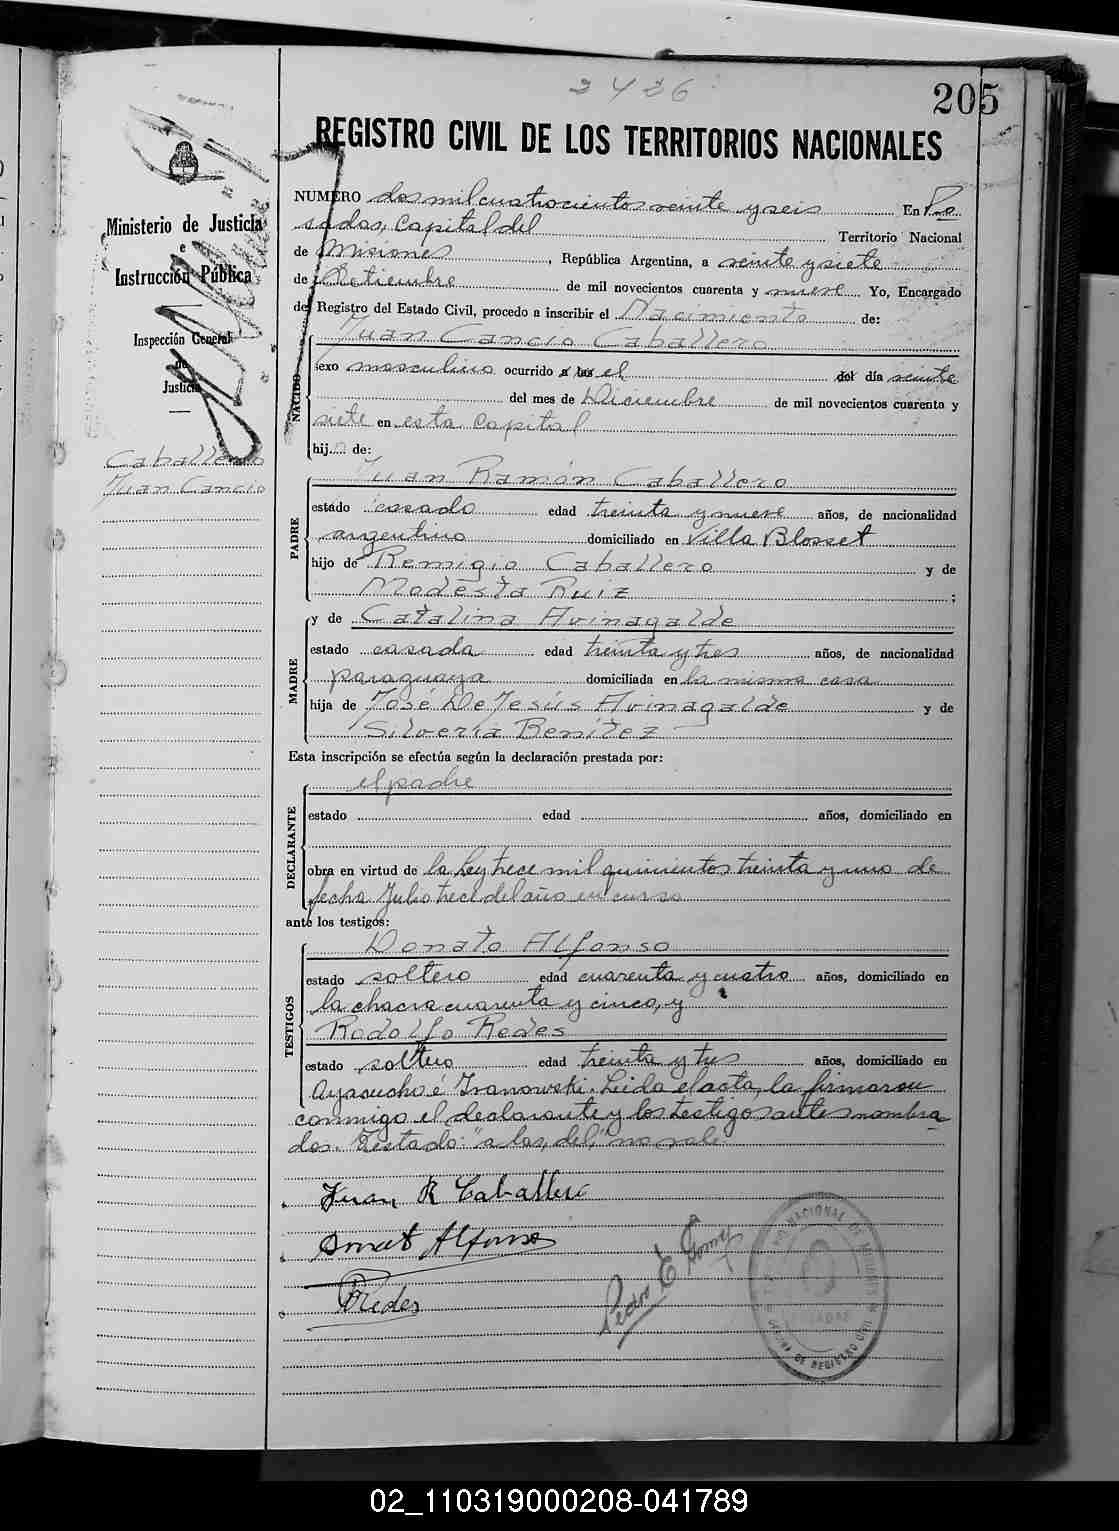 2426
205
REGISTRO CIVIL DE LOS TERRITORIOS NACIONALES
Ministerio de Justicia
e
Instrucción Pública
Inspección General
de
Justicia
Caballero
Juan Cancio
NUMERO dos mil cuatrocientos veinte y seis En Po
sadas, Capital del Territorio Nacional
de Misiones, República Argentina, a veinte y siete
de Setiembre de mil novecientos cuarenta y nueve Yo, Encargado
del Registro del Estado Civil, procedo a inscribir el Nacimiento de:
NACIDO
Juan Cancio Caballero
sexo masculino ocurrido a las el del día veinte
del mes de Diciembre de mil novecientos cuarenta y
siete en esta Capital
hijo de:
PADRE
Juan Ramón Caballero
estado casado edad treinta y nueve años, de nacionalidad
argentino domiciliado en Villa Blosset
hijo de Remigio Caballero y de
Modesta Ruiz ;
MADRE
y de Catalina Avinagalde
estado casada edad treinta y tres años, de nacionalidad
paraguaya domiciliada en la misma casa
hija de José De Jesús Avinagalde y de
Silveria Benítez
Esta inscripción se efectúa según la declaración prestada por:
DECLARANTE
el padre
estado edad años, domiciliado en
obra en virtud de la Ley trece mil quinientos treinta y uno de
fecha Julio trece del año en curso
ante los testigos:
TESTIGOS
Donato Alfonso
estado soltero edad cuarenta y cuatro años, domiciliado en
la chacra cuarenta y cinco, y
Rodolfo Redes
estado soltero edad treinta y tres años, domiciliado en
Ayacucho é Ivanowski. Leida el acta, la firmaron
conmigo el declarante y los testigos antes nombra-
dos. Testado: "a las, del," no vale.
Juan R Caballero
Donato Alfonso
RRedes
Pedro E Gomez
TERRITORIO NACIONAL DE MISIONES
POSADAS
OFICINA DE REGISTRO CIVIL
02_110319000208-041789